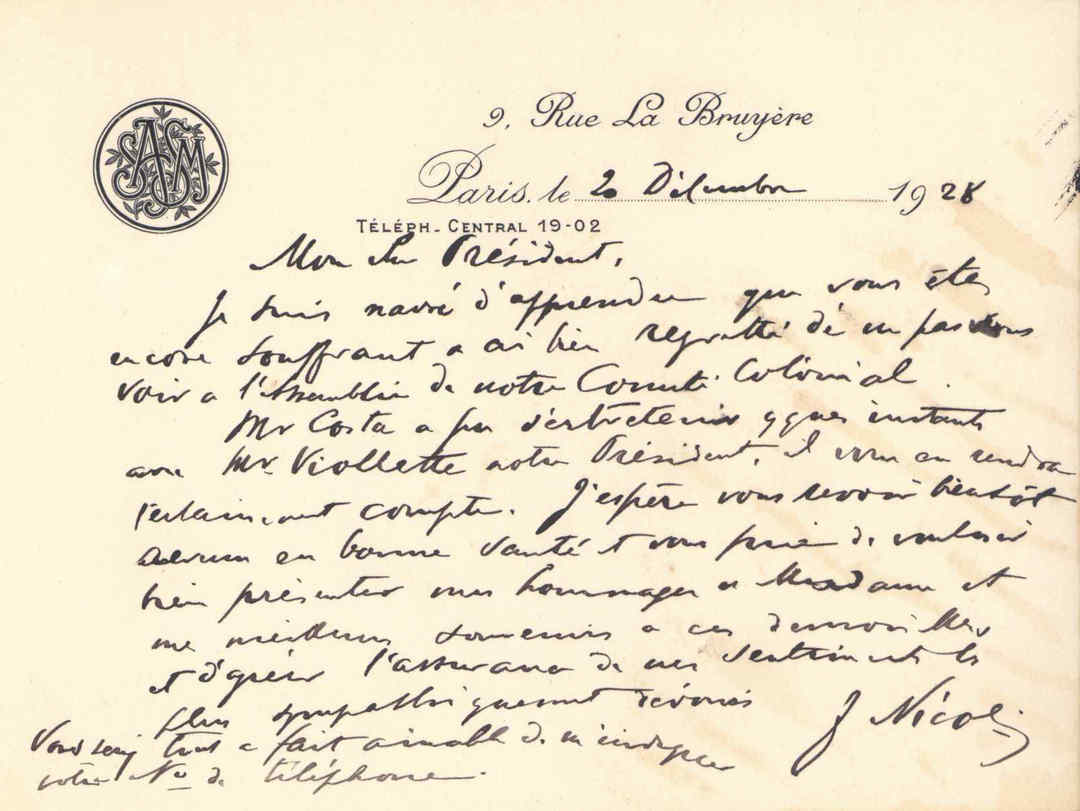 9, Rue La Bruyère
ASM
Paris, le 20 Décembre 1928
TÉLÉPH. CENTRAL 19-02
Mon cher Président,
Je suis navré d'apprendre que vous êtes
encore souffrant et ai bien regretté de ne pas vous
voir a l'assemblée de notre Comité Colonial.
Mr Costa a pu s'entretenir qques instants
avec Mr. Viollette notre Président, il vous en rendra
certainement compte. J'espère vous revoir bientôt
revenu en bonne santé et vous prie de vouloir
bien présenter mes hommages a Madame et
mes meilleurs souvenirs a ces demoiselles
et d'agréer l'assurance de mes sentiments les
plus sympathiquement dévoués
J Nicol
Vous seriez tout a fait aimable de m'indiquer
votre No de téléphone.